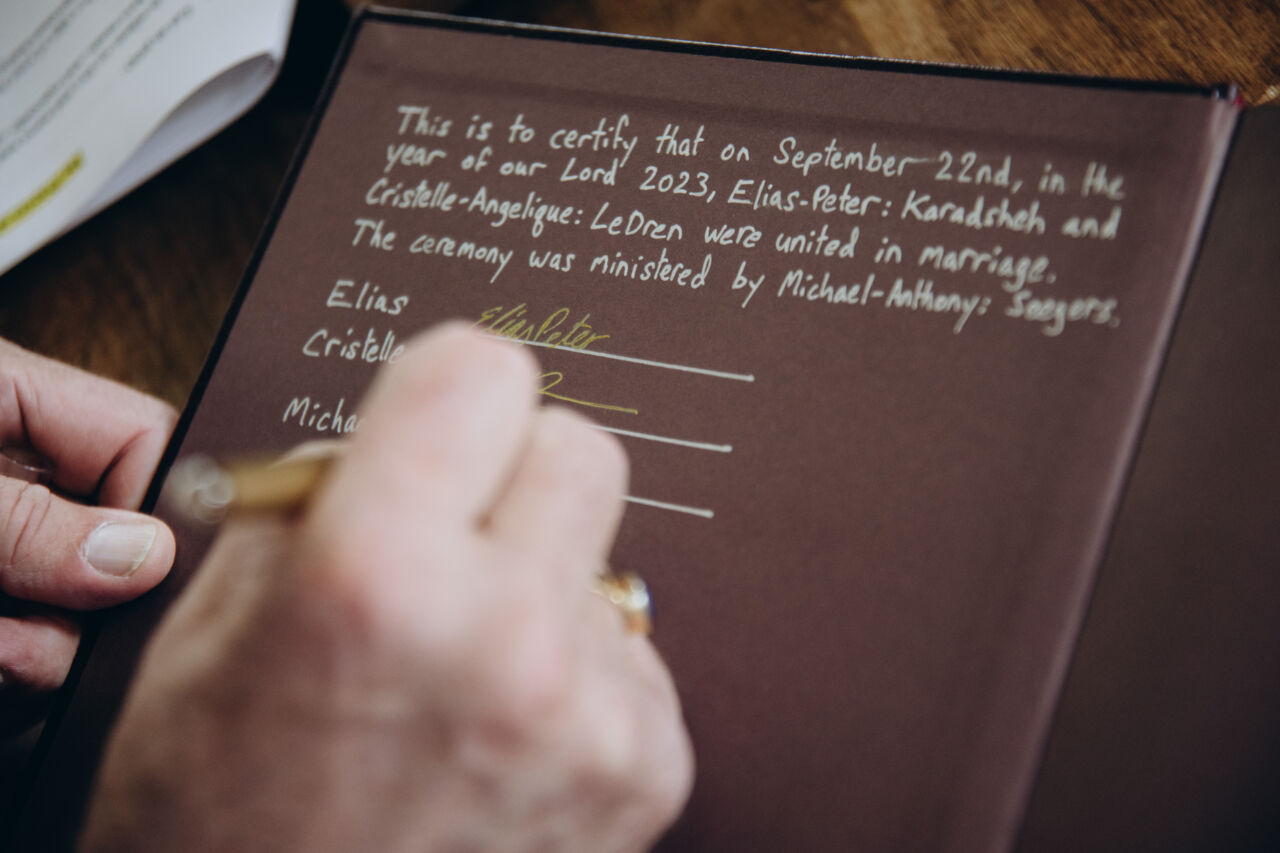 This is to certify that on September 22nd, in the
year of our Lord 2023, Elias-Peter: Karadsheh and
Cristelle-Angelique: LeDren were united in marriage.
The ceremony was ministered by Michael-Anthony: Seegers.
Elias EliasPeter
Cristelle
Micha